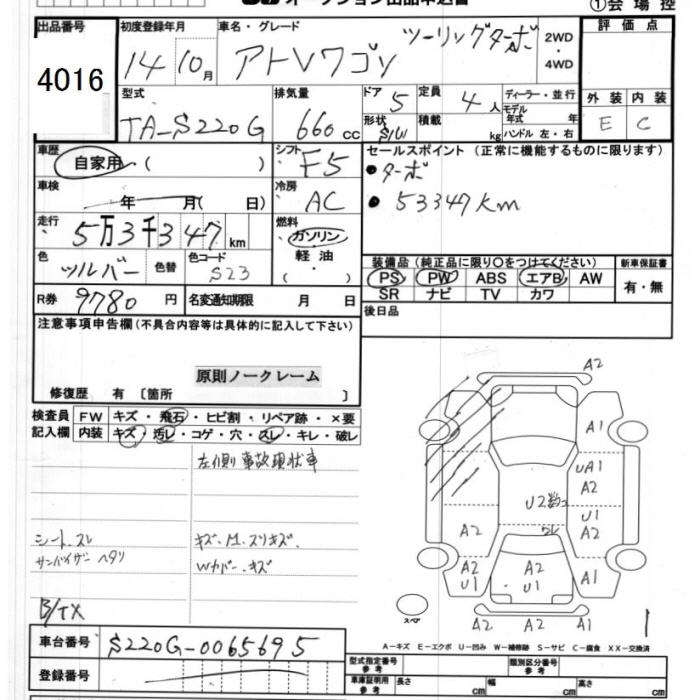 オークション出品申込書
①会場控
出品番号 初度登録年月 車名・グレード 評価点
4016 14 10月 アトレワゴン ツーリングターボ 2WD・4WD
型式 排気量 ドア 定員 ディーラー・並行 外装 内装
TA-S220G 660cc 5 4人 モデル年式 年 E C
形状 S/W 積載 kg ハンドル左・右
車歴 自家用 ( ) シフト F5 セールスポイント (正常に機能するものに限ります)
車検 年 月( 日) 冷房 AC ・ターボ
・53347km
走行 5万3千347km 燃料 ガソリン・軽油・( )
色 シルバー 色替 色コード S23
装備品 (純正品に限り○をつけてください) 新車保証書
PS PW ABS エアB AW 有・無
SR ナビ TV カワ
R券 9780円 名変通知期限 月 日
後日品
注意事項申告欄 (不具合内容等は具体的に記入して下さい)
原則ノークレーム
修復歴 有 〔箇所 〕
検査員記入欄 FW キズ・飛石・ヒビ割・リペア跡・×要
内装 キズ・汚レ・コゲ・穴・スレ・キレ・破レ
左側事故現状車
シート、スレ キズ、M.スリキズ、
サンバイザー ヘタリ Wカバー、キズ
B/TX
A2
A1
UA1
A2
U2数コ
U1
A2 A2
A2 U1 A2 U1 A1
A2 A2 A1
スペア
1
A-キズ E-エクボ U-凹み W-補修跡 S-サビ C-腐食 XX-交換済
車台番号 S220G-0065695
登録番号
型式指定番号 参考 類別区分番号 参考
車庫証明用 参考 長さ cm 幅 cm 高さ cm